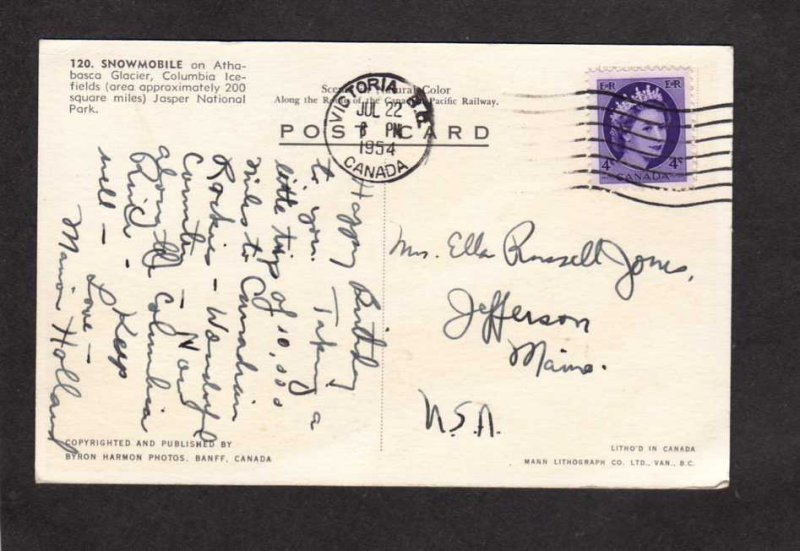 120. SNOWMOBILE on Atha-
basca Glacier, Columbia Ice-
fields (area approximately 200
square miles) Jasper National
Park.
Scenes in Natural Color
Along the Route of the Canadian Pacific Railway.
POST CARD
VICTORIA B.C.
JUL 22
PM
1954
CANADA
E R E R
4c 4c
CANADA
Happy Birthday
to you. Taking a
little trip of 10,000
miles to Canadian
Rockies - Wonderful
Country - Now
along the Columbia
River - Keep
well - Love -
Marion Holland
Mrs. Ella Russell Jones,
Jefferson
Maine.
U.S.A.
COPYRIGHTED AND PUBLISHED BY
BYRON HARMON PHOTOS, BANFF, CANADA
LITHO'D IN CANADA
MANN LITHOGRAPH CO. LTD., VAN., B.C.